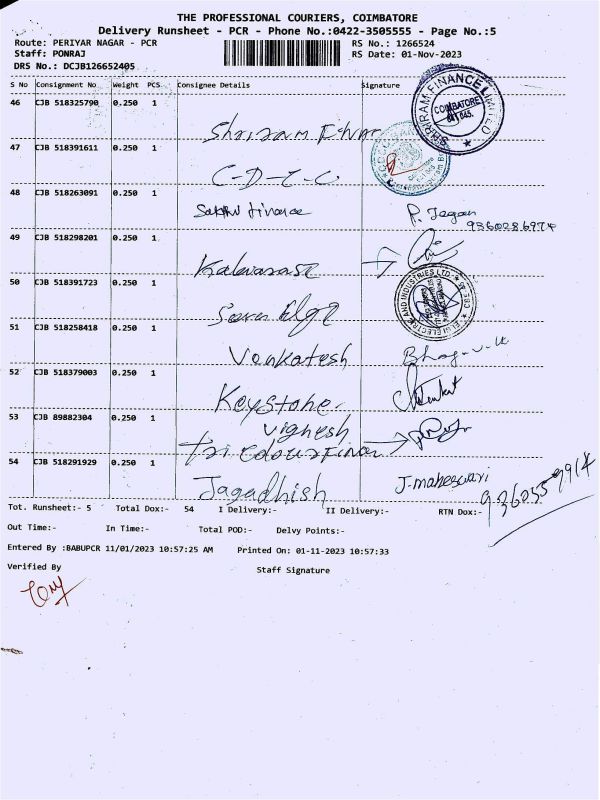 THE PROFESSIONAL COURIERS, COIMBATORE
Delivery Runsheet - PCR - Phone No.:0422-3505555 - Page No.:5
Route: PERIYAR NAGAR - PCR RS No.: 1266524
Staff: PONRAJ RS Date: 01-Nov-2023
DRS No.: DCJB126652405
S No Consignment No Weight PCS Consignee Details Signature
46 CJB 518325790 0.250 1
SHRIRAM FINANCE LIMITED
COIMBATORE
641045
Shriram
47 CJB 518391611 0.250 1
C-D-C-C
48 CJB 518263091 0.250 1
Sakthi finance P. Jagan
9360286974
49 CJB 518298201 0.250 1
Kalaiarasi
50 CJB 518391723 0.250 1
ELGI ELECTRIC AND INDUSTRIES LTD
51 CJB 518258418 0.250 1
Venkatesh
52 CJB 518379003 0.250 1
Keystone
53 CJB 89882304 0.250 1
Vighesh
Tri Colour
54 CJB 518291929 0.250 1
Jagadhish J. maheswari
Tot. Runsheet:- 5 Total Dox:- 54 I Delivery:- II Delivery:- RTN Dox:-
Out Time:- In Time:- Total POD:- Delvy Points:-
Entered By :BABUPCR 11/01/2023 10:57:25 AM Printed On: 01-11-2023 10:57:33
Verified By Staff Signature